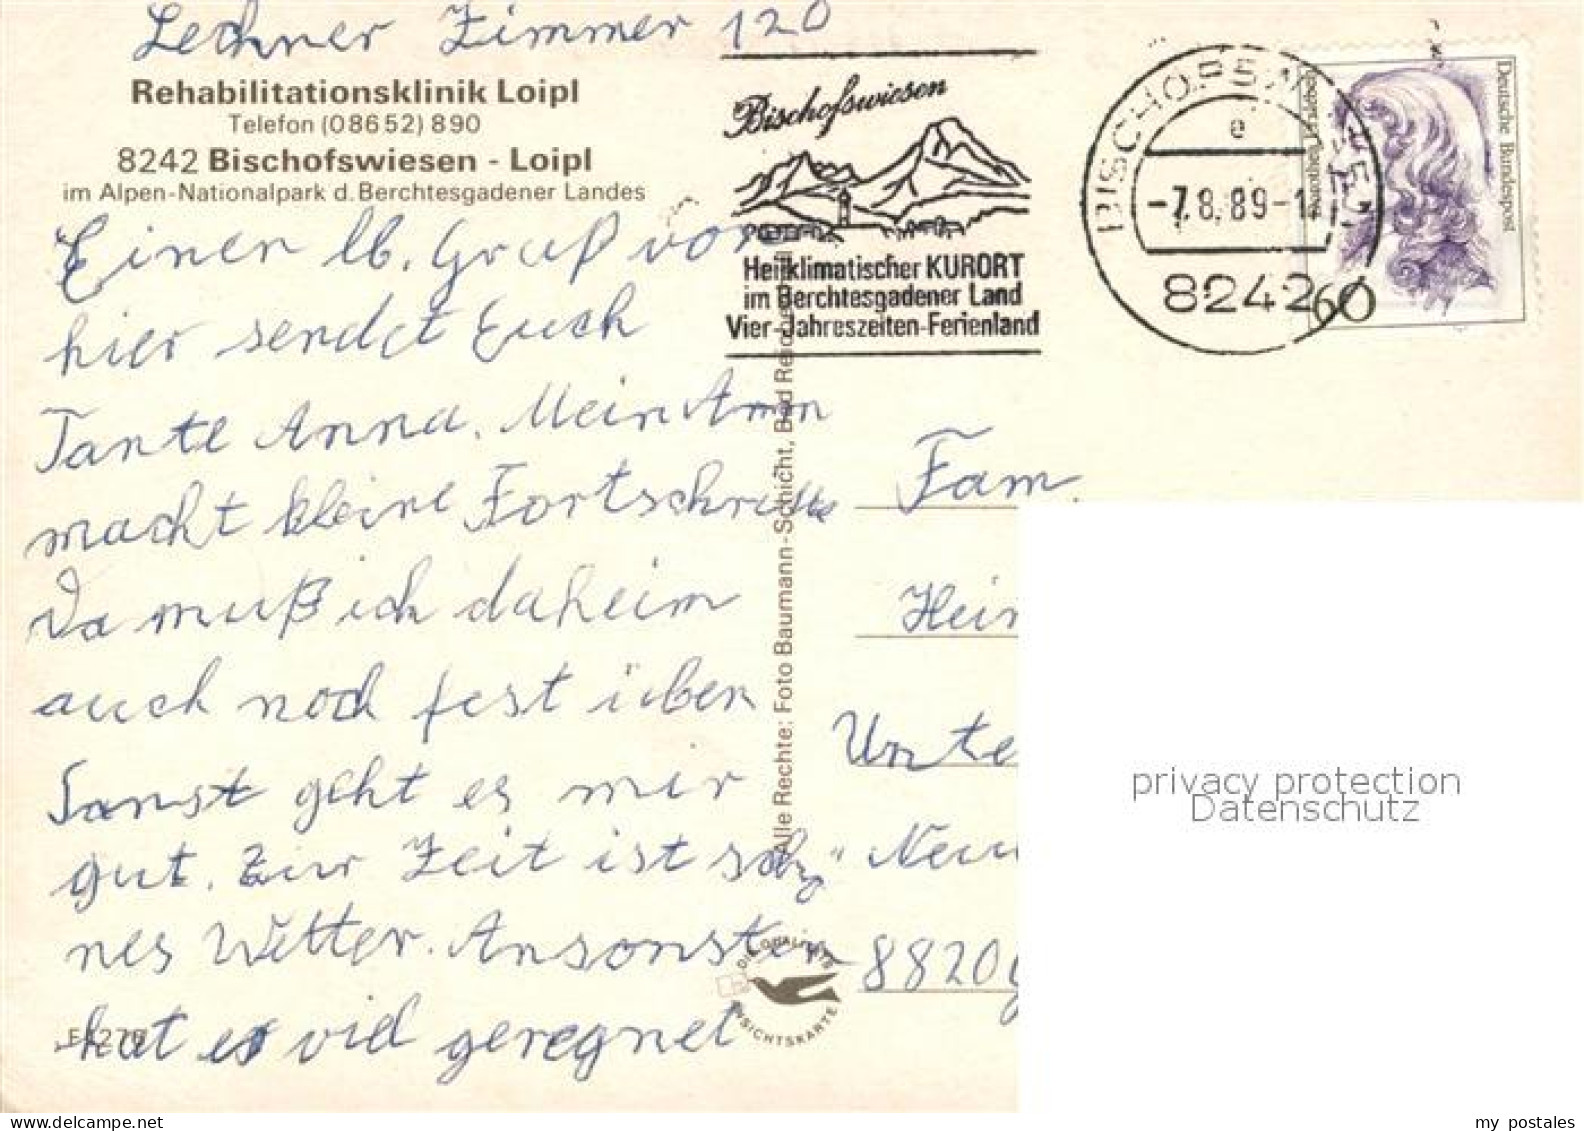 Lechner Zimmer 120
Rehabilitationsklinik Loipl
Telefon (08652) 890
8242 Bischofswiesen - Loipl
im Alpen-Nationalpark d. Berchtesgadener Landes
Bischofswiesen
Heilklimatischer KURORT
im Berchtesgadener Land
Vier-Jahreszeiten-Ferienland
BISCHOFSWIESEN
e
-7.8.89-1
8242
Deutsche Bundespost
60
Einen lb. Gruß von
hier sendet Euch
Tante Anna. Mein Arm
macht kleine Fortschritte
Da muß ich daheim
auch noch fest üben
Sonst geht es mir
gut. Zur Zeit ist schö"
nes Wetter. Ansonsten
hat es viel geregnet
Alle Rechte: Foto Baumann-Schicht, Bad Reichenhall
DIE QUALITÄTS
ANSICHTSKARTE
Fam.
Hein
Unte
Neu
8820 G
privacy protection
Datenschutz
my postales